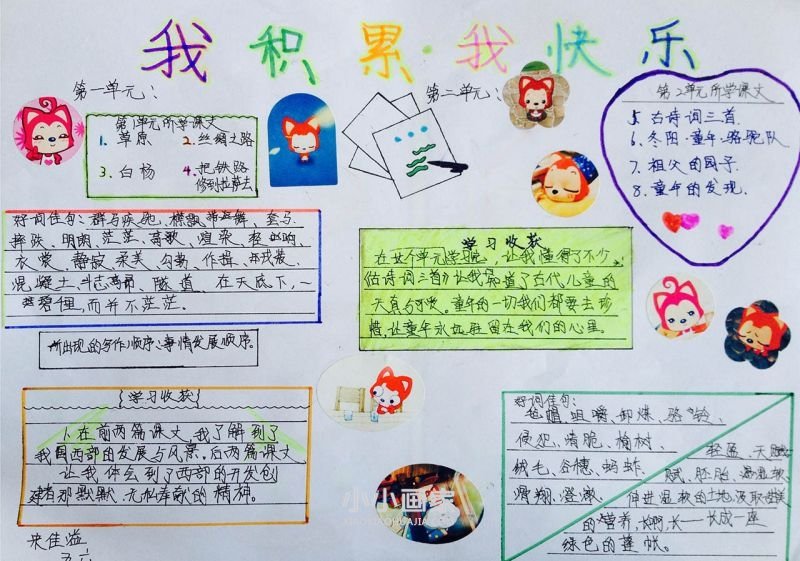 我积累·我快乐
第一单元：
第1单元所学课文
1. 草原 2. 丝绸之路
3. 白杨 4. 把铁路
修到拉萨去
第二单元：
第2单元所学课文
5. 古诗词三首.
6. 冬阳·童年·骆驼队
7. 祖父的园子.
8. 童年的发现.
好词佳句：群马疾驰、襟飘带舞、套马
摔跤、明朗、茫茫、高歌、渲染
衣裳、静寂、柔美、勾勒
混凝土、隧道 在天底下,一
碧千里,而并不茫茫.
所出现的写作顺序:事情发展顺序.
学习收获
在这个单元学完,让我懂得了不少,
《古诗词三首》让我知道了古代儿童的
天真与可爱。童年的一切我们都要去珍
惜,让童年永远驻留在我们的心里。
{学习收获}
1.在前两篇课文,我了解到了
我国西部的发展与风景。后两篇课文
让我体会到了西部的开发创
建者那默默无私奉献的精神。
好词佳句：
毡帽、咀嚼、卸煤、骆、铃、
侵犯、清脆、榆树、
绒毛、蚂蚱
滑翔、澄澈、
轻盈、天赋
赋、胚胎、
伸进温软的土地,汲取
的营养,长啊,长——长成一座
绿色的蓬帐。
小小画家